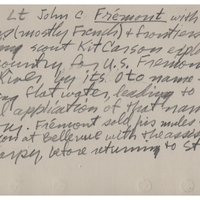 Lt John C. Frémont with
(mostly French) & frontiers
scout Kit Carson expl
country for U.S. Fremon
River by its Oto name -
ing flat water, leading to
l application of that nam
ry. Frémont sold his mules
on at Bellevue with the assis
arpy, before returning to St